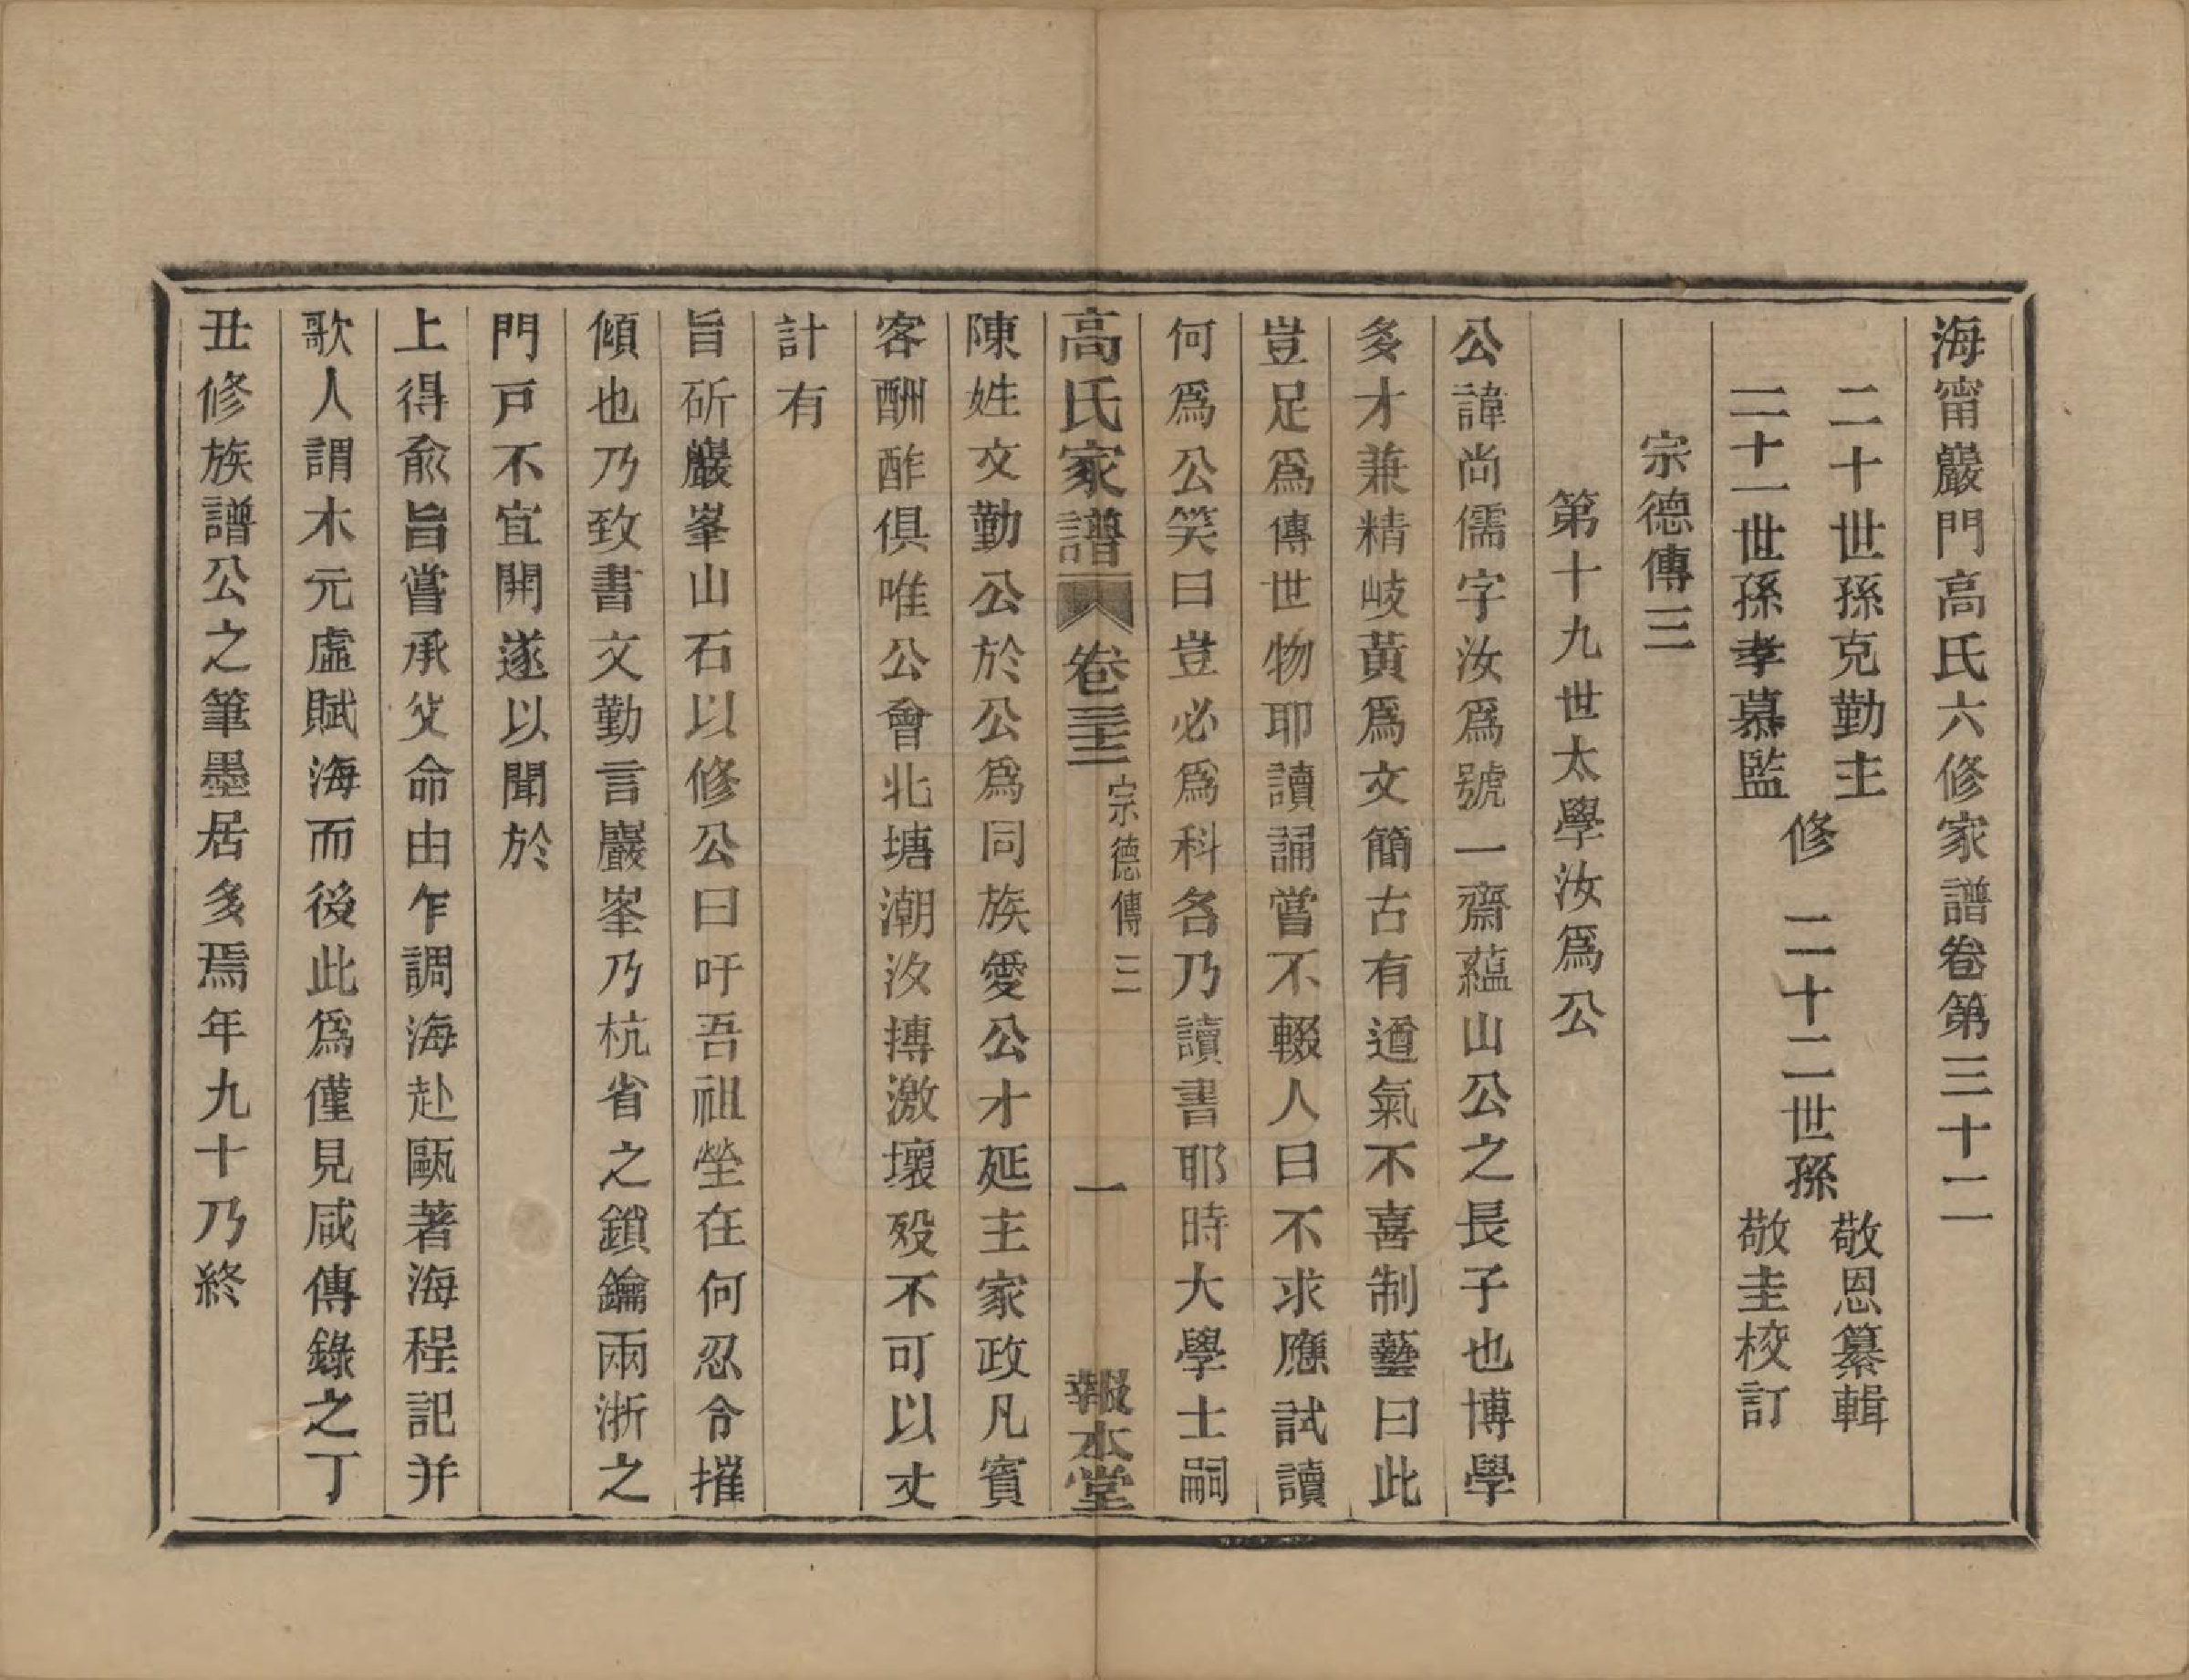 海甯巖門高氏六修家譜卷第三十二
二十世孫克勤主
二十一世孫孝慕監
修
二十二世孫
敬恩纂輯
敬圭校訂
宗德傳三
第十九世太學汝爲公
公諱尚儒字汝爲號一齋蘊山公之長子也博學
多才兼精岐黃爲文簡古有遒氣不喜制藝曰此
豈足爲傳世物耶讀誦嘗不輟人曰不求應試讀
何爲公笑曰豈必爲科名乃讀書耶時大學士嗣
高氏家譜
卷三十二
宗德傳三
一
報本堂
陳姓文勤公於公爲同族愛公才延主家政凡賓
客酬酢俱唯公會北塘潮汝摶激壞殁不可以丈
計有
旨斫巖峯山石以修公曰吁吾祖塋在何忍令摧
傾也乃致書文勤言巖峯乃杭省之鎖鑰兩浙之
門戸不宜開遂以聞於
上得兪旨嘗承父命由乍調海赴甌著海程記并
歌人謂木元虛賦海而後此爲僅見咸傳錄之丁
丑修族譜公之筆墨居多焉年九十乃終